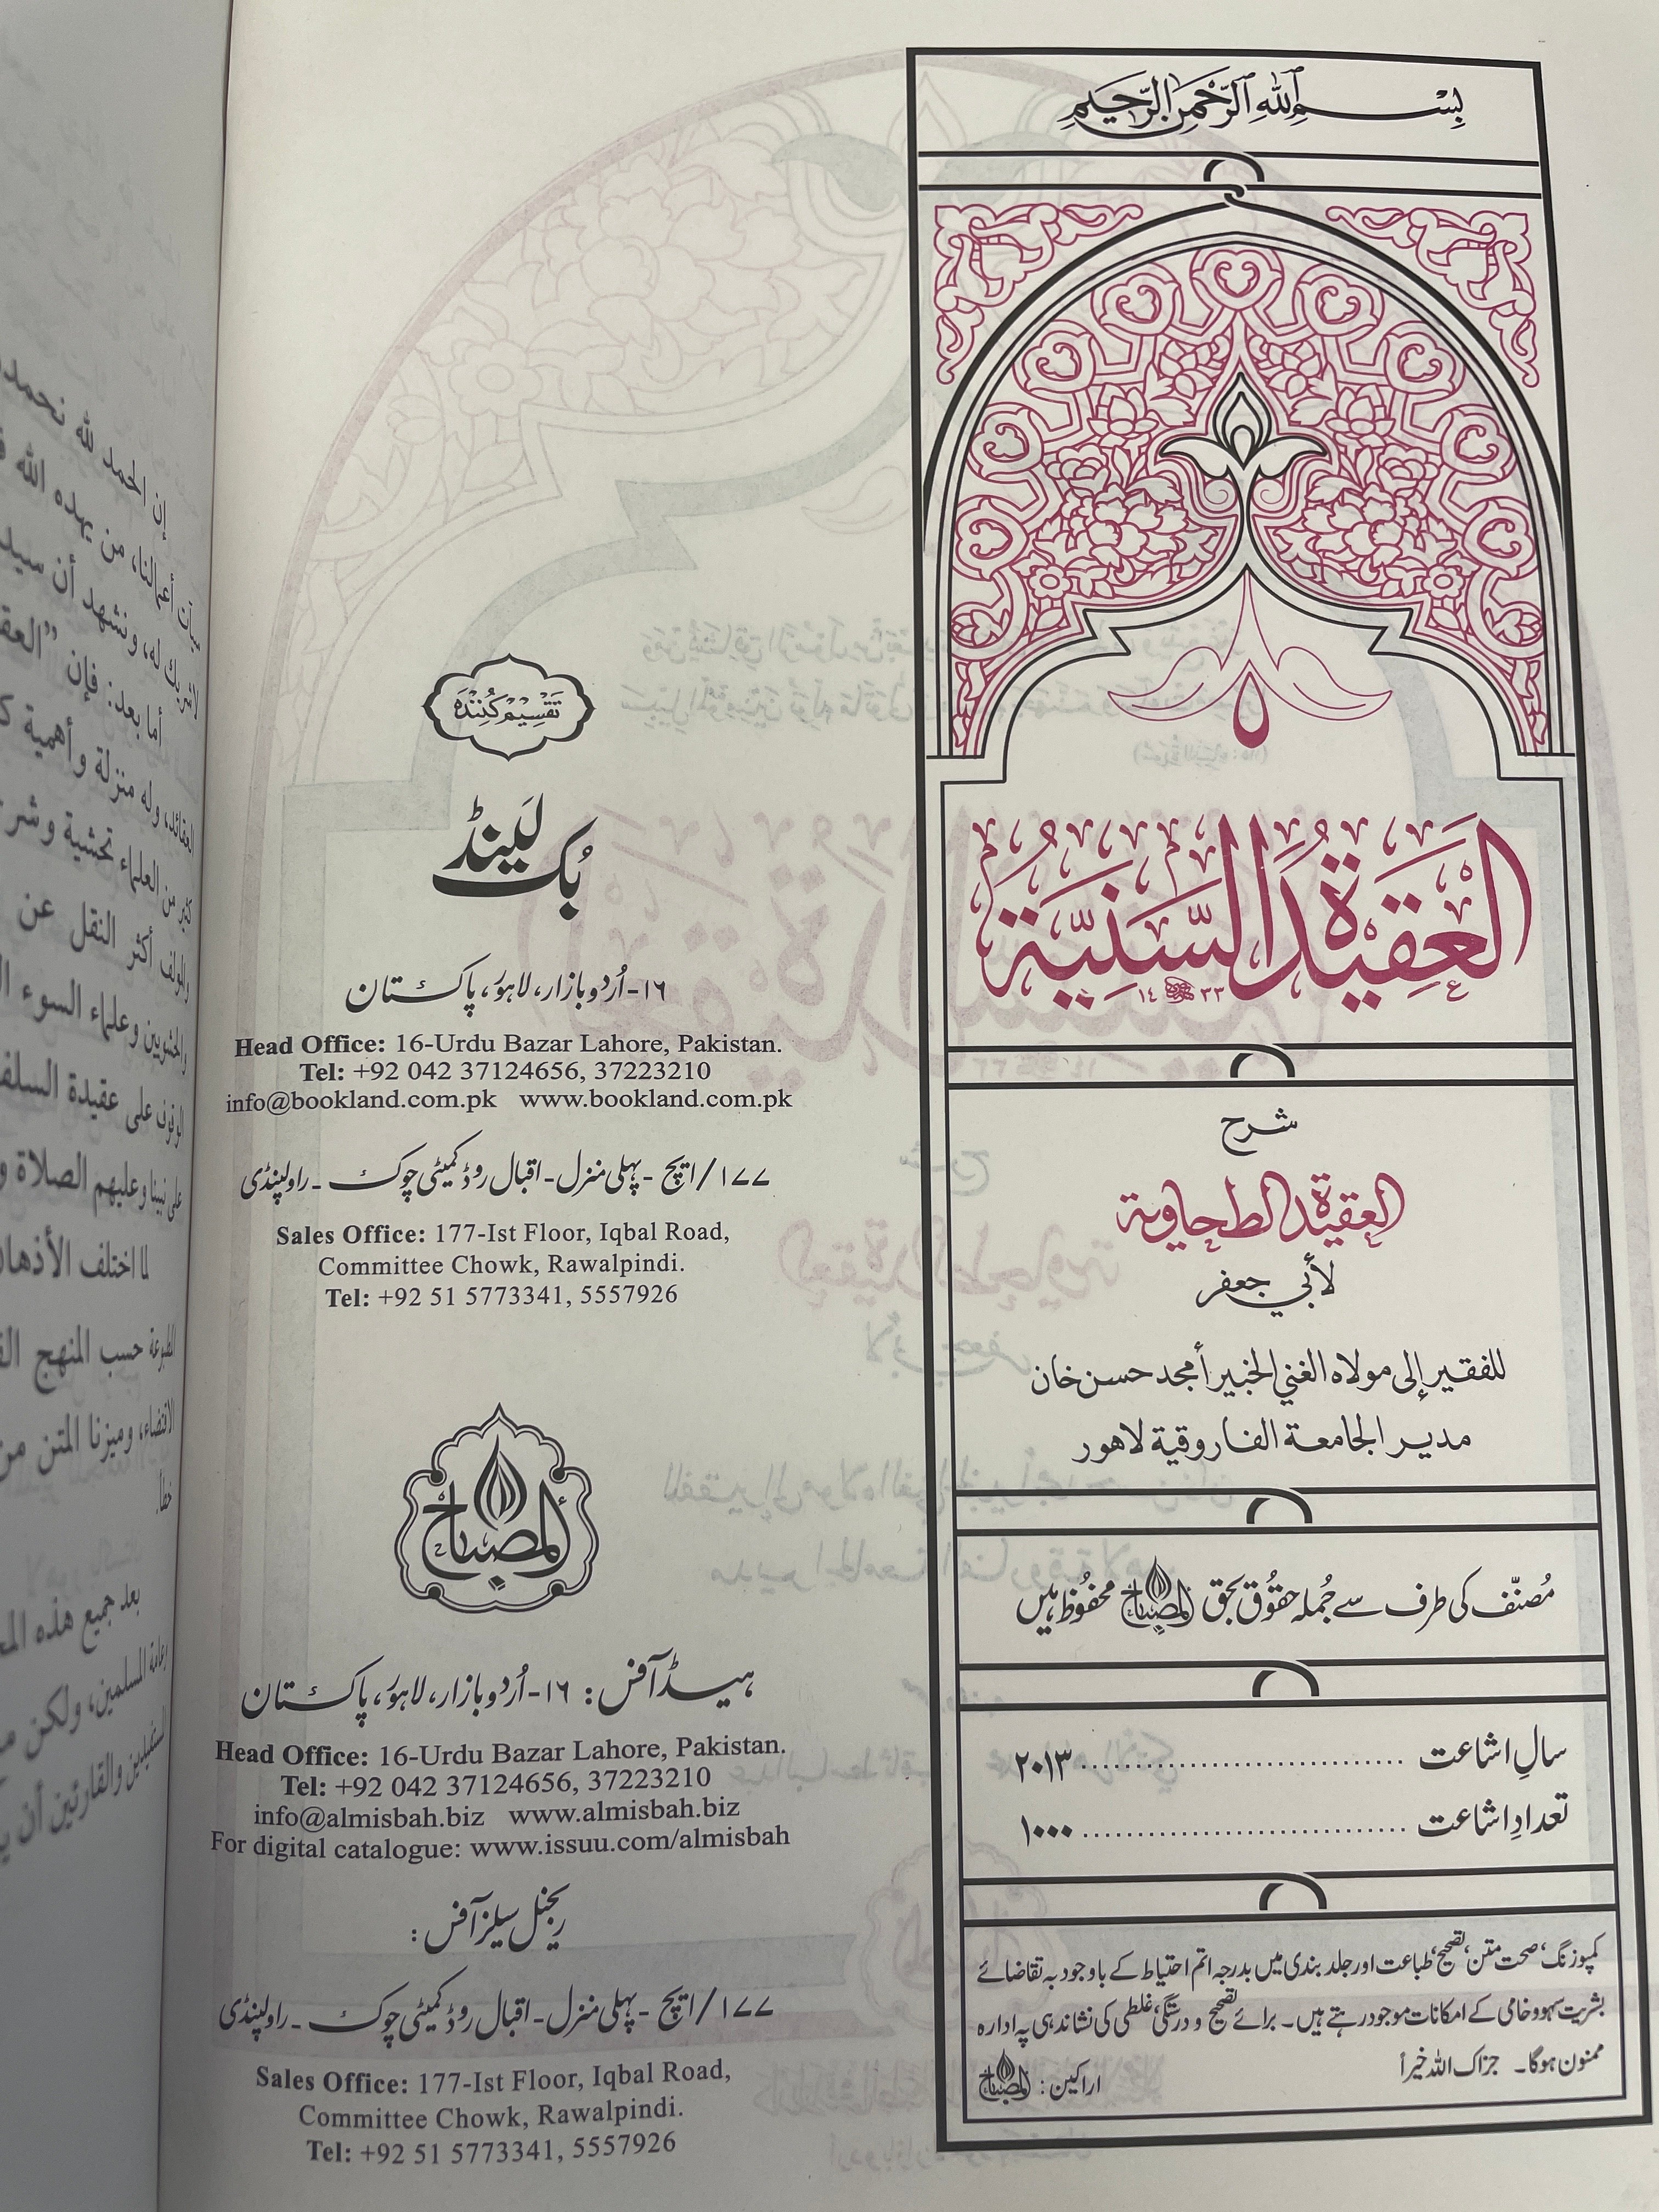 بِسْمِ اللهِ الرَّحْمٰنِ الرَّحِيْمِ
العَقِيْدَةُ السَّنِيَّةُ
١٤ ٣٣
شرح
العقيدة الطحاوية
لأبي جعفر
للفقير إلى مولاه الغني الخبير أمجد حسن خان
مدير الجامعة الفاروقية لاهور
مُصنّف کی طرف سے جُملہ حقُوق بحق المصباح محفُوظ ہیں
سالِ اشاعت ........................ ۲۰۱۳
تعدادِ اشاعت ........................ ۱۰۰۰
کمپوزنگ، صحت متن، تصحیح، طباعت اور جلد بندی میں بدرجہ اتم احتیاط کے باوجود بہ تقاضائے
بشریت سہو و خامی کے امکانات موجود رہتے ہیں۔ برائے تصحیح و درستگی، غلطی کی نشاندہی پہ ادارہ
ممنون ہوگا۔ جزاک اللہ خیراً
اراکین: المصباح
تَقْسِیْم کُنِنْدَہ
بُک لَینڈ
۱۶-اُردو بازار، لاہوَر، پاکستان
Head Office: 16-Urdu Bazar Lahore, Pakistan.
Tel: +92 042 37124656, 37223210
info@bookland.com.pk www.bookland.com.pk
۱۷۷/ایچ - پہلی منزل - اقبال روڈ کمیٹی چوک - راولپنڈی
Sales Office: 177-Ist Floor, Iqbal Road,
Committee Chowk, Rawalpindi.
Tel: +92 51 5773341, 5557926
المصباح
ہیڈ آفس: ۱۶-اُردو بازار، لاہوَر، پاکستان
Head Office: 16-Urdu Bazar Lahore, Pakistan.
Tel: +92 042 37124656, 37223210
info@almisbah.biz www.almisbah.biz
For digital catalogue: www.issuu.com/almisbah
ریجنل سیلز آفس:
۱۷۷/ایچ - پہلی منزل - اقبال روڈ کمیٹی چوک - راولپنڈی
Sales Office: 177-Ist Floor, Iqbal Road,
Committee Chowk, Rawalpindi.
Tel: +92 51 5773341, 5557926
إن الحمد لله نحمده
أعمالنا، من يهده الله
له، ونشهد أن
أما بعد: فإن "العق
وله منزلة وأهمية
من العلماء تحشية وشر
أكثر النقل عن
وعلماء السوء
على عقيدة السلف
وعليهم الصلاة و
اختلف الأذهان
حسب المنهج
وميزنا المتن من
بعد جميع هذه
المسلمين، ولكن
والقارئين أن